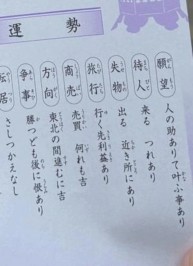 運勢
願望 人の助ありて叶ふ事あり
待人 来る つれあり
失物 出る 近き所にあり
旅行 行く先利益あり
商売 売買 何れも吉
方向 東北の間進むに吉
争事 勝つとも後に恨あり
転居 さしつかえなし